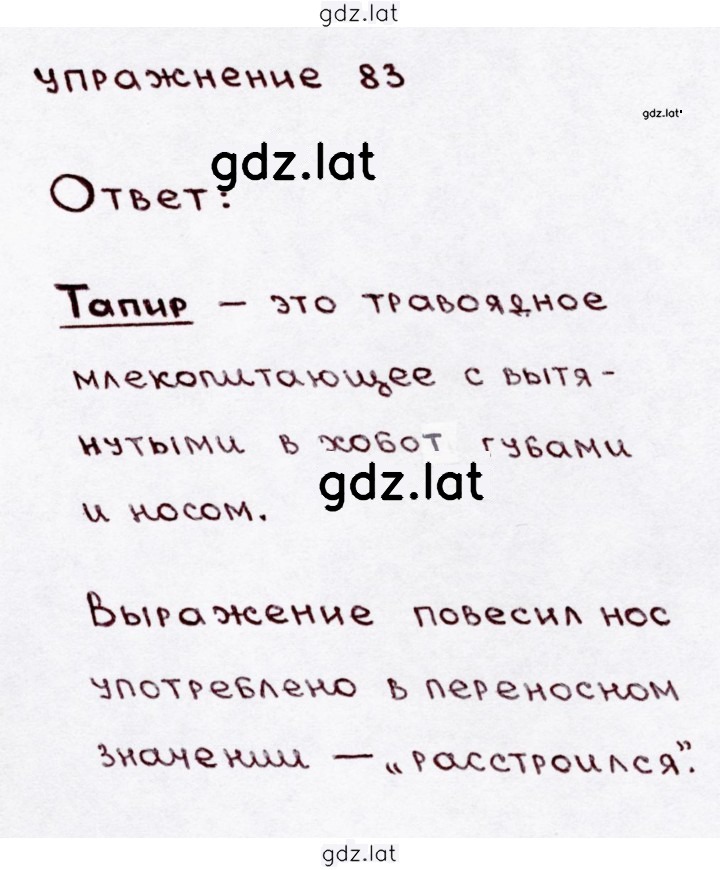 gdz.lat
упражнение 83
gdz.lat
gdz.lat
Ответ:
Тапир – это травоядное
млекопитающее с вытя-
нутыми в хобот губами
gdz.lat
и носом.
Выражение повесил нос
употреблено в переносном
значении – „расстроился”.
gdz.lat